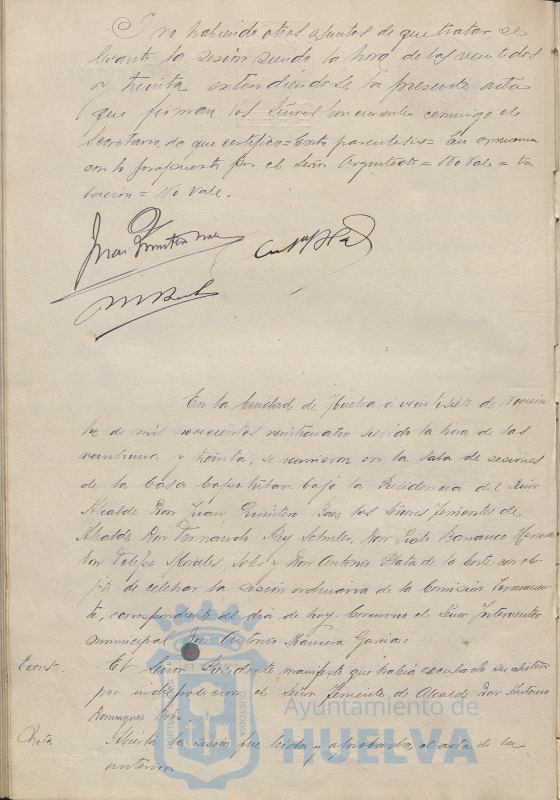 Y no habiendo otros asuntos de que tratar se
levantó la sesión siendo la hora de las veintidos
y treinta extendiéndose la presente acta
que firman los Señores concurrentes conmigo el
Secretario, de que certifico = Entre parentesis = En armonia
con lo propuesto por el Señor Arquitecto = No Vale =
= No Vale.
En la Ciudad de Huelva a veintisiete de Noviem
bre de mil novecientos veinticuatro siendo la hora de las
veintiuna y treinta, se reunieron en la Sala de sesiones
de la Casa Capitular bajo la Presidencia del Señor
Alcalde Don Juan Quintero Baez los Señores Tenientes de
Alcalde Don Fernando Rey Don Sixto Barranco
Don Felipe Morales Soto y Don Antonio Plata de la Corte con ob
jeto de celebrar la sesión ordinaria de la Comisión Permanen
te, correspondiente al dia de hoy Concurrió el Señor Interventor
municipal Don Antonio Garcia.
Excust. El Señor Presidente manifestó que habia excusado su asisten
por indisposición el Señor Teniente de Alcalde Don Antonio
Dominguez
Acta Abierta la sesión fue leida y aprobada el acta de la
anterior.
Ayuntamiento de
HUELVA